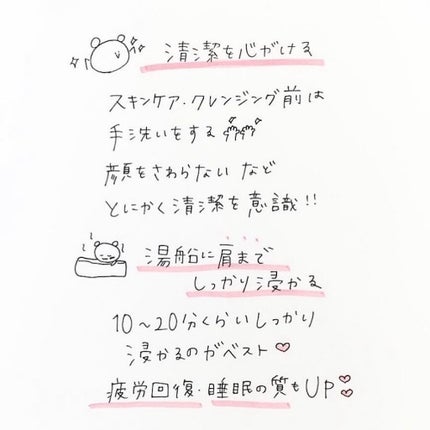 清潔を心がける
スキンケア・クレンジング前は
手洗いをする
顔をさわらない など
とにかく清潔を意識!!
湯船に肩まで
しっかり浸かる
10〜20分くらいしっかり
浸かるのがベスト
疲労回復・睡眠の質もUP